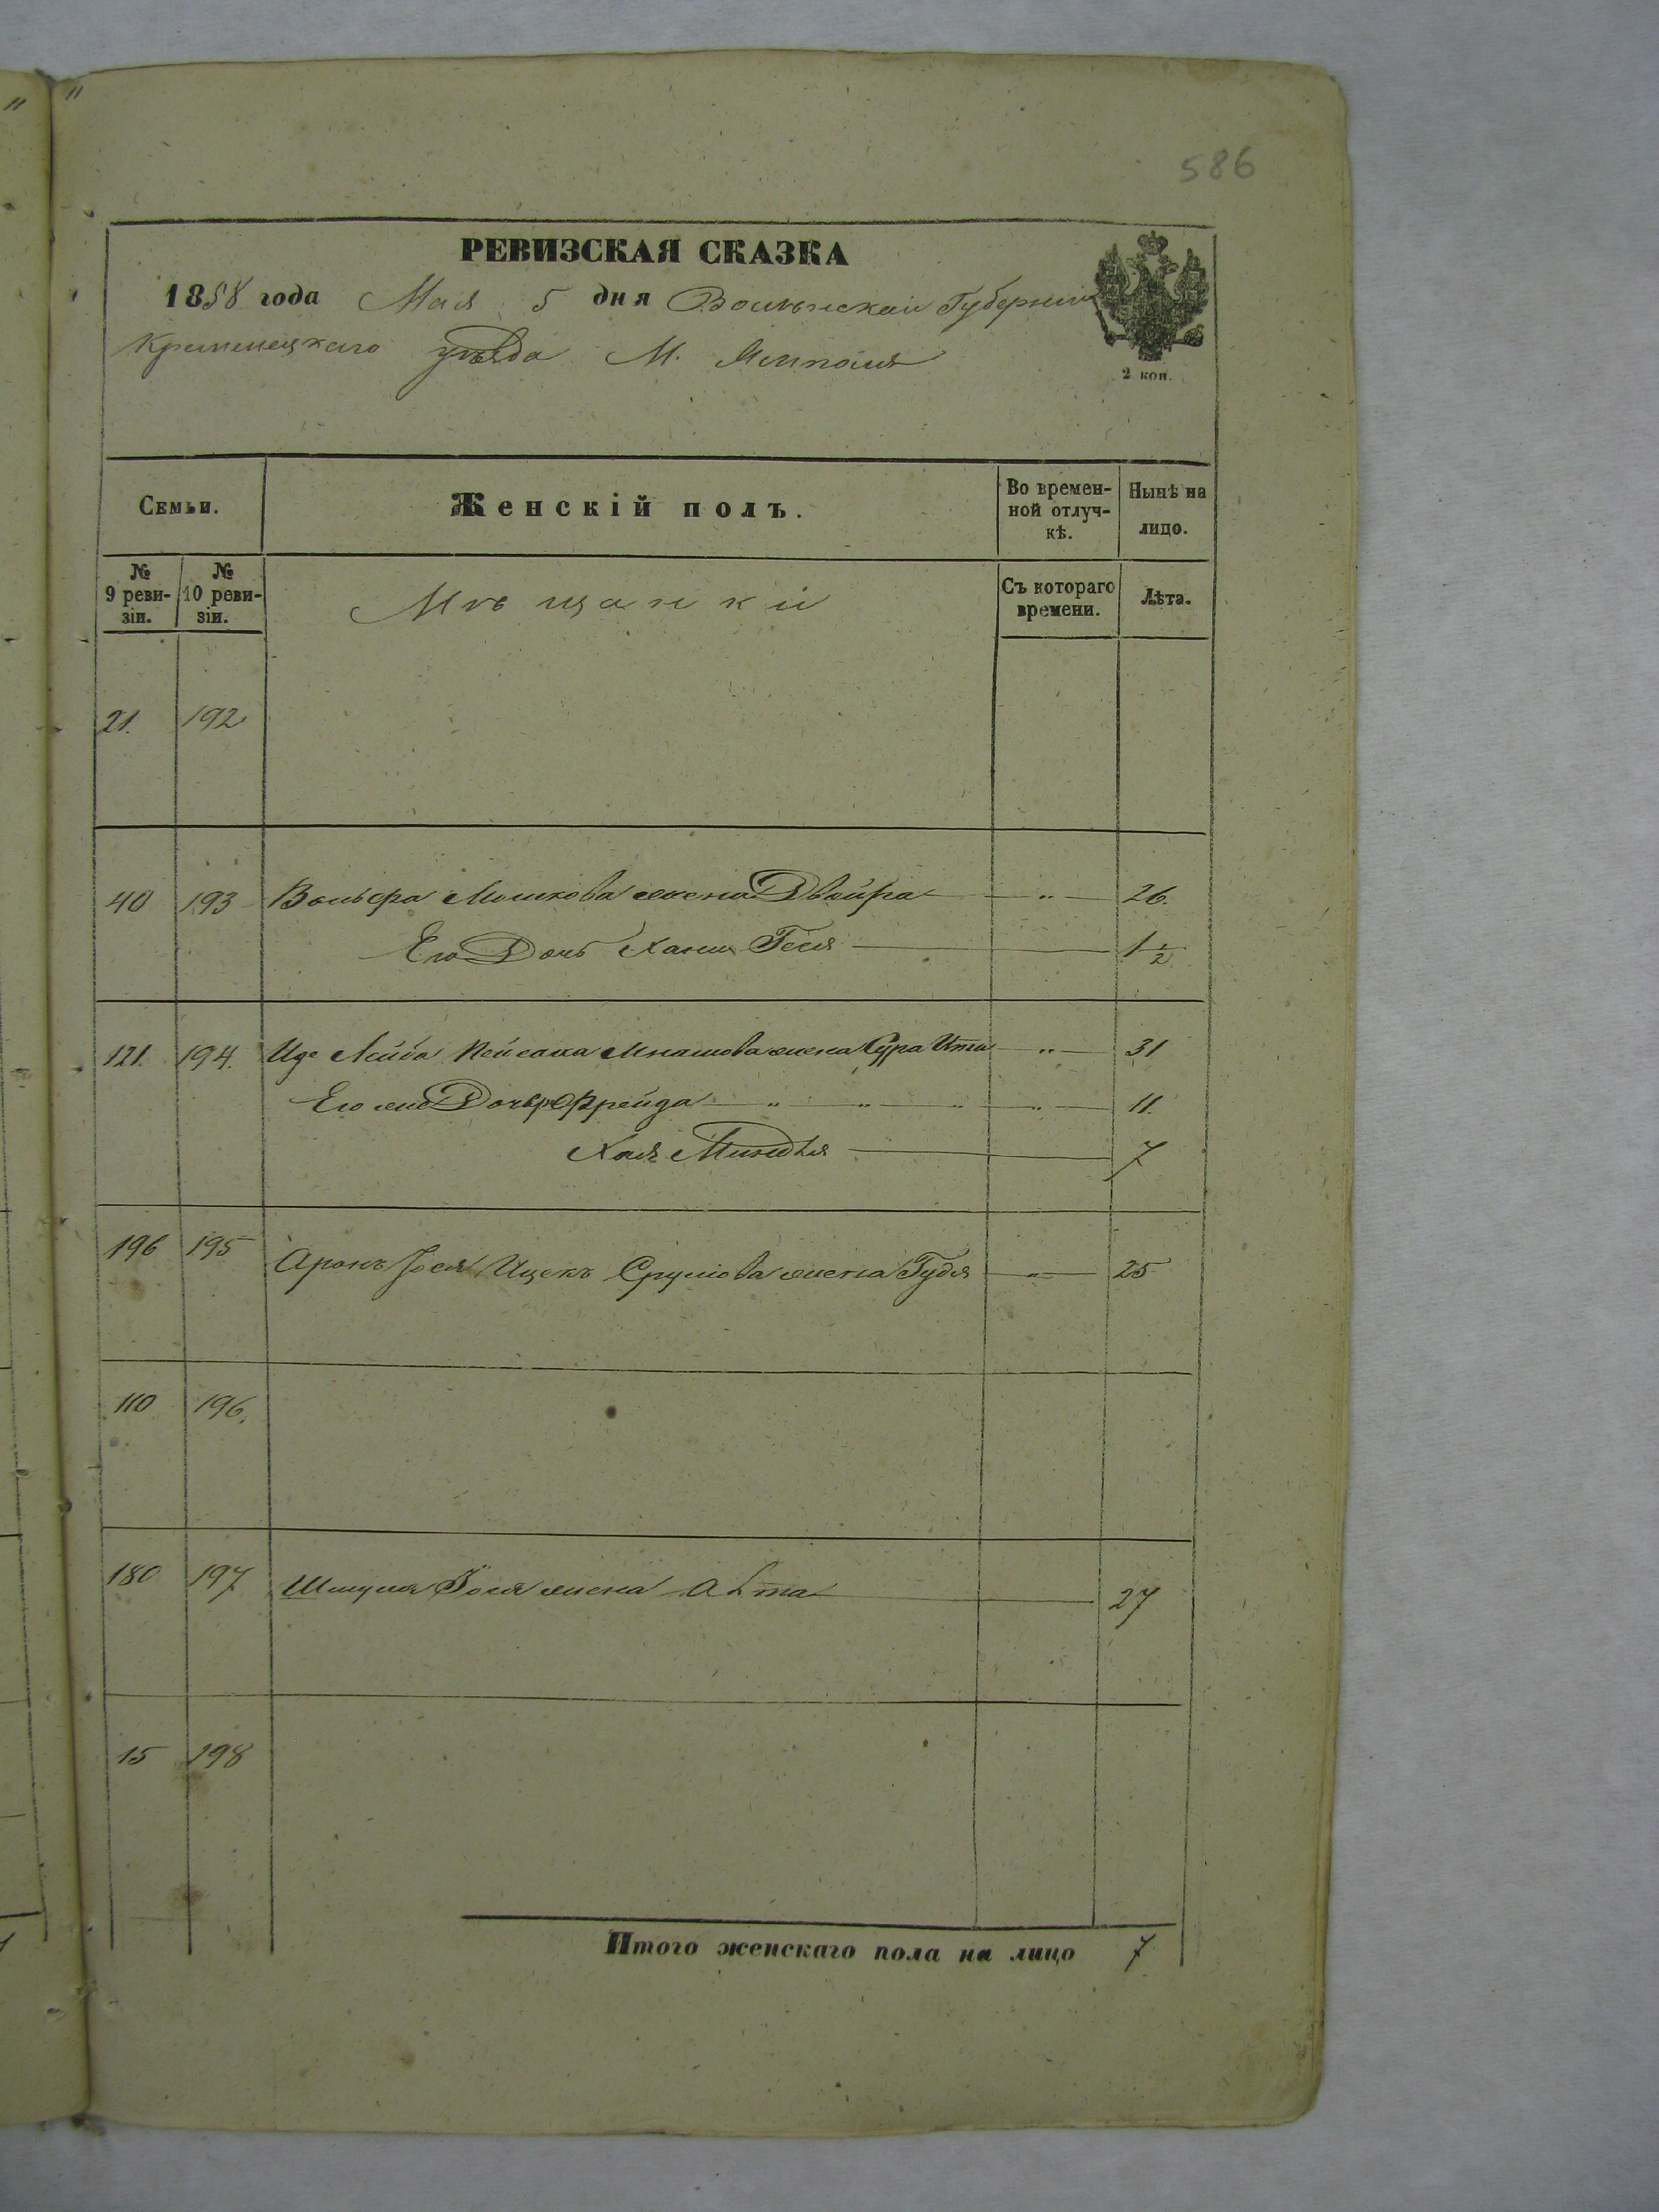 586
РЕВИЗСКАЯ СКАЗКА
1858 года Мая 5 дня Волынской Губерніи
Кременецкаго уѣзда М. Ямполя
2 коп.
Семьи.
Женскій полъ.
Во времен-
ной отлуч-
кѣ.
Нынѣ на
лицо.
№
9 реви-
зіи.
№
10 реви-
зіи.
Мѣщанки
Съ котораго
времени.
Лѣта.
21. 192
40 193 Вольфа Мошкова жена Двойра — " — 26.
Его Дочь Хана Геся 1 1/2
121. 194. Иде Лейба Пейсаха Мнашова жена Сура Ита — " — 31
Его же Дочери Фрейда — " — " — " — " — 11.
Хая Миндля 7
196 195 Аронъ Іося Ицекъ Срулова жена Гудя — " — 25
110 196.
180 197 Шмуля Іося жена 27
15 198
Итого женскаго пола на лицо 7